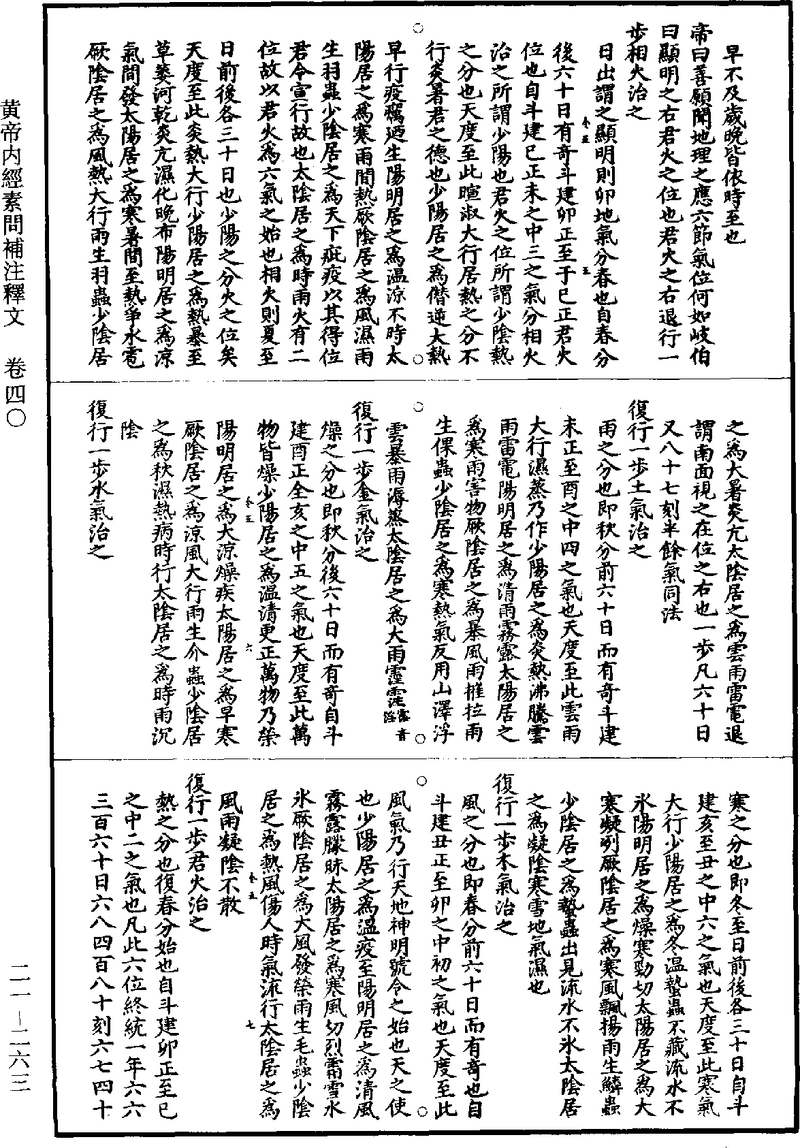 早不及歲晚皆依時至也
帝曰善願聞地理之應六節氣位何如岐伯
曰顯明之右君火之位也君火之右退行一
步相火治之
日出謂之顯明則卯地氣分春也自春分
後六十日有奇斗建卯正至于巳正君火
位也自斗建巳正未之中三之氣分相火
治之所謂少陽也君火之位所謂少陰熱
之分也天度至此暄淑大行居熱之分不
行炎暑君之德也少陽居之爲僭逆大熱
早行疫癘廼生陽明居之爲溫涼不時太
陽居之爲寒雨間熱厥陰居之爲風濕雨
生羽蟲少陰居之爲天下疵疫以其得位
君令宣行故也太陰居之爲時雨火有二
位故以君火爲六氣之始也相火則夏至
日前後各三十日也少陽之分火之位矣
天度至此炎熱大行少陽居之爲熱暴至
草萎河乾炎亢濕化晚布陽明居之爲涼
氣間發太陽居之爲寒暑間至熱爭水雹
厥陰居之爲風熱大行雨生羽蟲少陰居
之爲大暑炎亢太陰居之爲雲雨雷電退
謂南面視之在位之右也一步凡六十日
又八十七刻半餘氣同法
復行一步土氣治之
雨之分也即秋分前六十日而有奇斗建
未正至酉之中四之氣也天度至此雲雨
大行濕蒸乃作少陽居之爲炎熱沸騰雲
雨雷電陽明居之爲清雨霧露太陽居之
爲寒雨害物厥陰居之爲暴風雨摧拉雨
生倮蟲少陰居之爲寒熱氣反用山澤浮
雲暴雨溽蒸太陰居之爲大雨霪霪音淫
復行一步金氣治之
燥之分也即秋分後六十日而有奇自斗
建酉正全亥之中五之氣也天度至此萬
物皆燥少陽居之爲溫清更正萬物乃榮
陽明居之爲大涼燥疾太陽居之爲早寒
厥陰居之爲涼風大行雨生介蟲少陰居
之爲秋濕熱病時行太陰居之爲時雨沉
陰
復行一步水氣治之
寒之分也即冬至日前後各三十日自斗
建亥至丑之中六之氣也天度至此寒氣
大行少陽居之爲冬溫蟄蟲不藏流水不
氷陽明居之爲燥寒勁切太陽居之爲大
寒凝冽厥陰居之爲寒風飄揚雨生鱗蟲
少陰居之爲蟄蟲出見流水不氷太陰居
之爲凝陰寒雪地氣濕也
復行一步木氣治之
風之分也即春分前六十日而有奇也自
斗建丑正至卯之中初之氣也天度至此
風氣乃行天地神明號令之始也天之使
也少陽居之爲溫疫至陽明居之爲清風
霧露朦昧太陽居之爲寒風切烈霜雪水
氷厥陰居之爲大風發榮雨生毛蟲少陰
居之爲熱風傷人時氣流行太陰居之爲
風雨凝陰不散
復行一步君火治之
熱之分也復春分始也自斗建卯正至巳
之中二之氣也凡此六位終統一年六六
三百六十日六八四百八十刻六七四十
黄帝内經素問補注釋文　卷四〇
二一－二六三